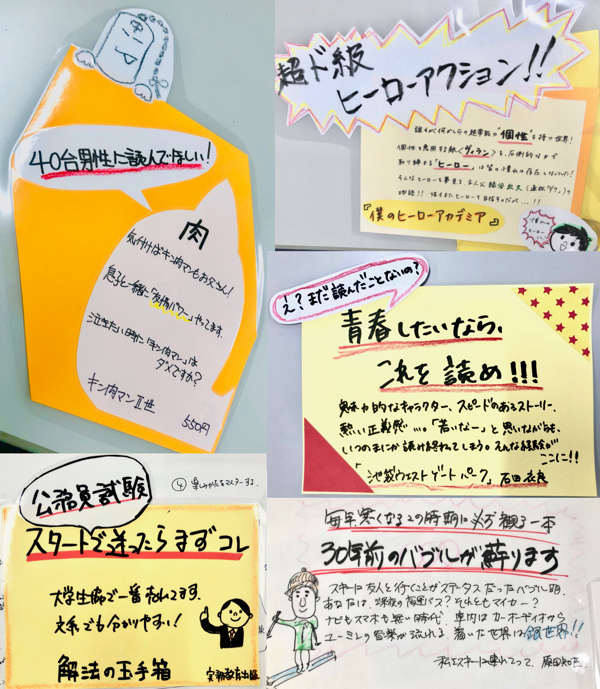 40台男性に読んでほしい!
肉
気付けばキン肉マンもお父さん!
息子と一緒に「友情パワー」やってます。
泣きたい時に「キン肉マン」は
ダメですか?
キン肉マンⅡ世
550円
超ド級
ヒーローアクション!!
誰もが何かしらの超常能力"個性"を持つ世界!
個性を悪用する敵〈ヴィラン〉を、圧倒的な力で
取り締まる「ヒーロー」は皆の憧れの存在となっていた!
そんなヒーローを夢見る、主人公緑谷出久(通称デク)の
物語!!
『僕のヒーローアカデミア』
え?まだ読んだことないの?
青春したいなら、
これを読め!!!
魅力的なキャラクター、スピードのあるストーリー、
熱い正義感…。「若いな…」と思いながらも、
いつのまにか読み終わってしまう。そんな経験が
ここに!!
「池袋ウエストゲートパーク」石田衣良
公務員試験
④
スタートで迷ったらまずコレ
大学生協で一番売れてます。
文系でも分かりやすい!
解法の玉手箱
実務教育出版
毎年寒くなるこの時期に必ず観る一本
30年前のバブルが蘇ります
スキーに友人と行くことがステータスだったバブル期。
あなたは深夜の夜行バス?それともマイカー?
ナビもスマホも無い時代、車内はカーオーディオから
ユーミンの音楽が流れる。着いた世界は銀世界!!
私をスキーに連れてって、原田知世